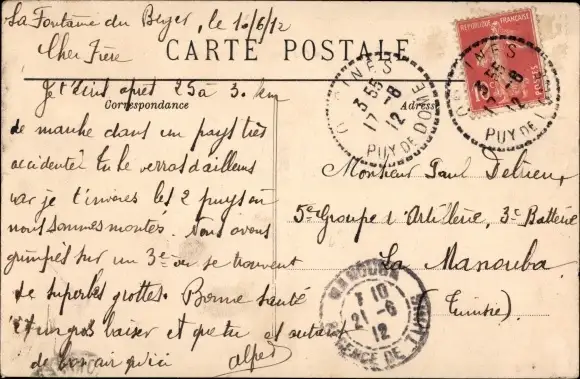 La Fontaine du Berger, le 16/6/12
Cher Frère
CARTE POSTALE
REPUBLIQUE FRANÇAISE
POSTES
Correspondance
Adresse
Je t'écris après 25 à 30 km
de marche dans un pays très
accidenté tu le verras d'ailleurs
car je t'envoies les 2 puys où
nous sommes montés. Nous avons
grimpés sur un 3e où se trouvent
de superbes grottes. Bonne santé
et un gros baiser et que tu ai autant
de bon air qu'ici
alfred
Monsieur Paul
5e Groupe d'Artillerie, 3e Batterie
La Manouba
(Tunisie)
3 55
17 -8
12
PUY DE DOME
3 55
17 -8
12
PUY DE DOME
MANOUBA
7 10
21 -6
12
REGENCE DE TUNIS